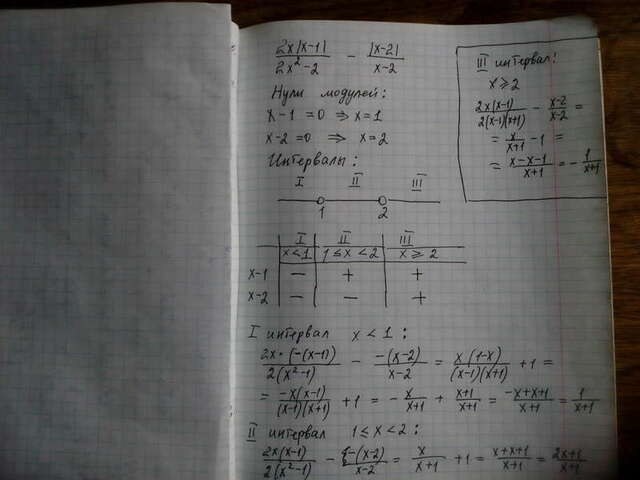 2x|x-1| / 2x²-2 - |x-2| / x-2
Нули модулей:
x-1=0 ⇒ x=1
x-2=0 ⇒ x=2
Интервалы:
I II III
1 2
I II III
x<1 1≤x<2 x≥2
x-1 - + +
x-2 - - +
I интервал x<1:
2x·(-(x-1)) / 2(x²-1) - -(x-2) / x-2 = x(1-x) / (x-1)(x+1) +1 =
= -x(x-1) / (x-1)(x+1) +1 = -x / x+1 + x+1 / x+1 = -x+x+1 / x+1 = 1 / x+1
II интервал 1≤x<2:
2x(x-1) / 2(x²-1) - -(x-2) / x-2 = x / x+1 +1 = x+x+1 / x+1 = 2x+1 / x+1
III интервал:
x≥2
2x(x-1) / 2(x-1)(x+1) - x-2 / x-2 =
= x / x+1 -1 =
= x-x-1 / x+1 = - 1 / x+1